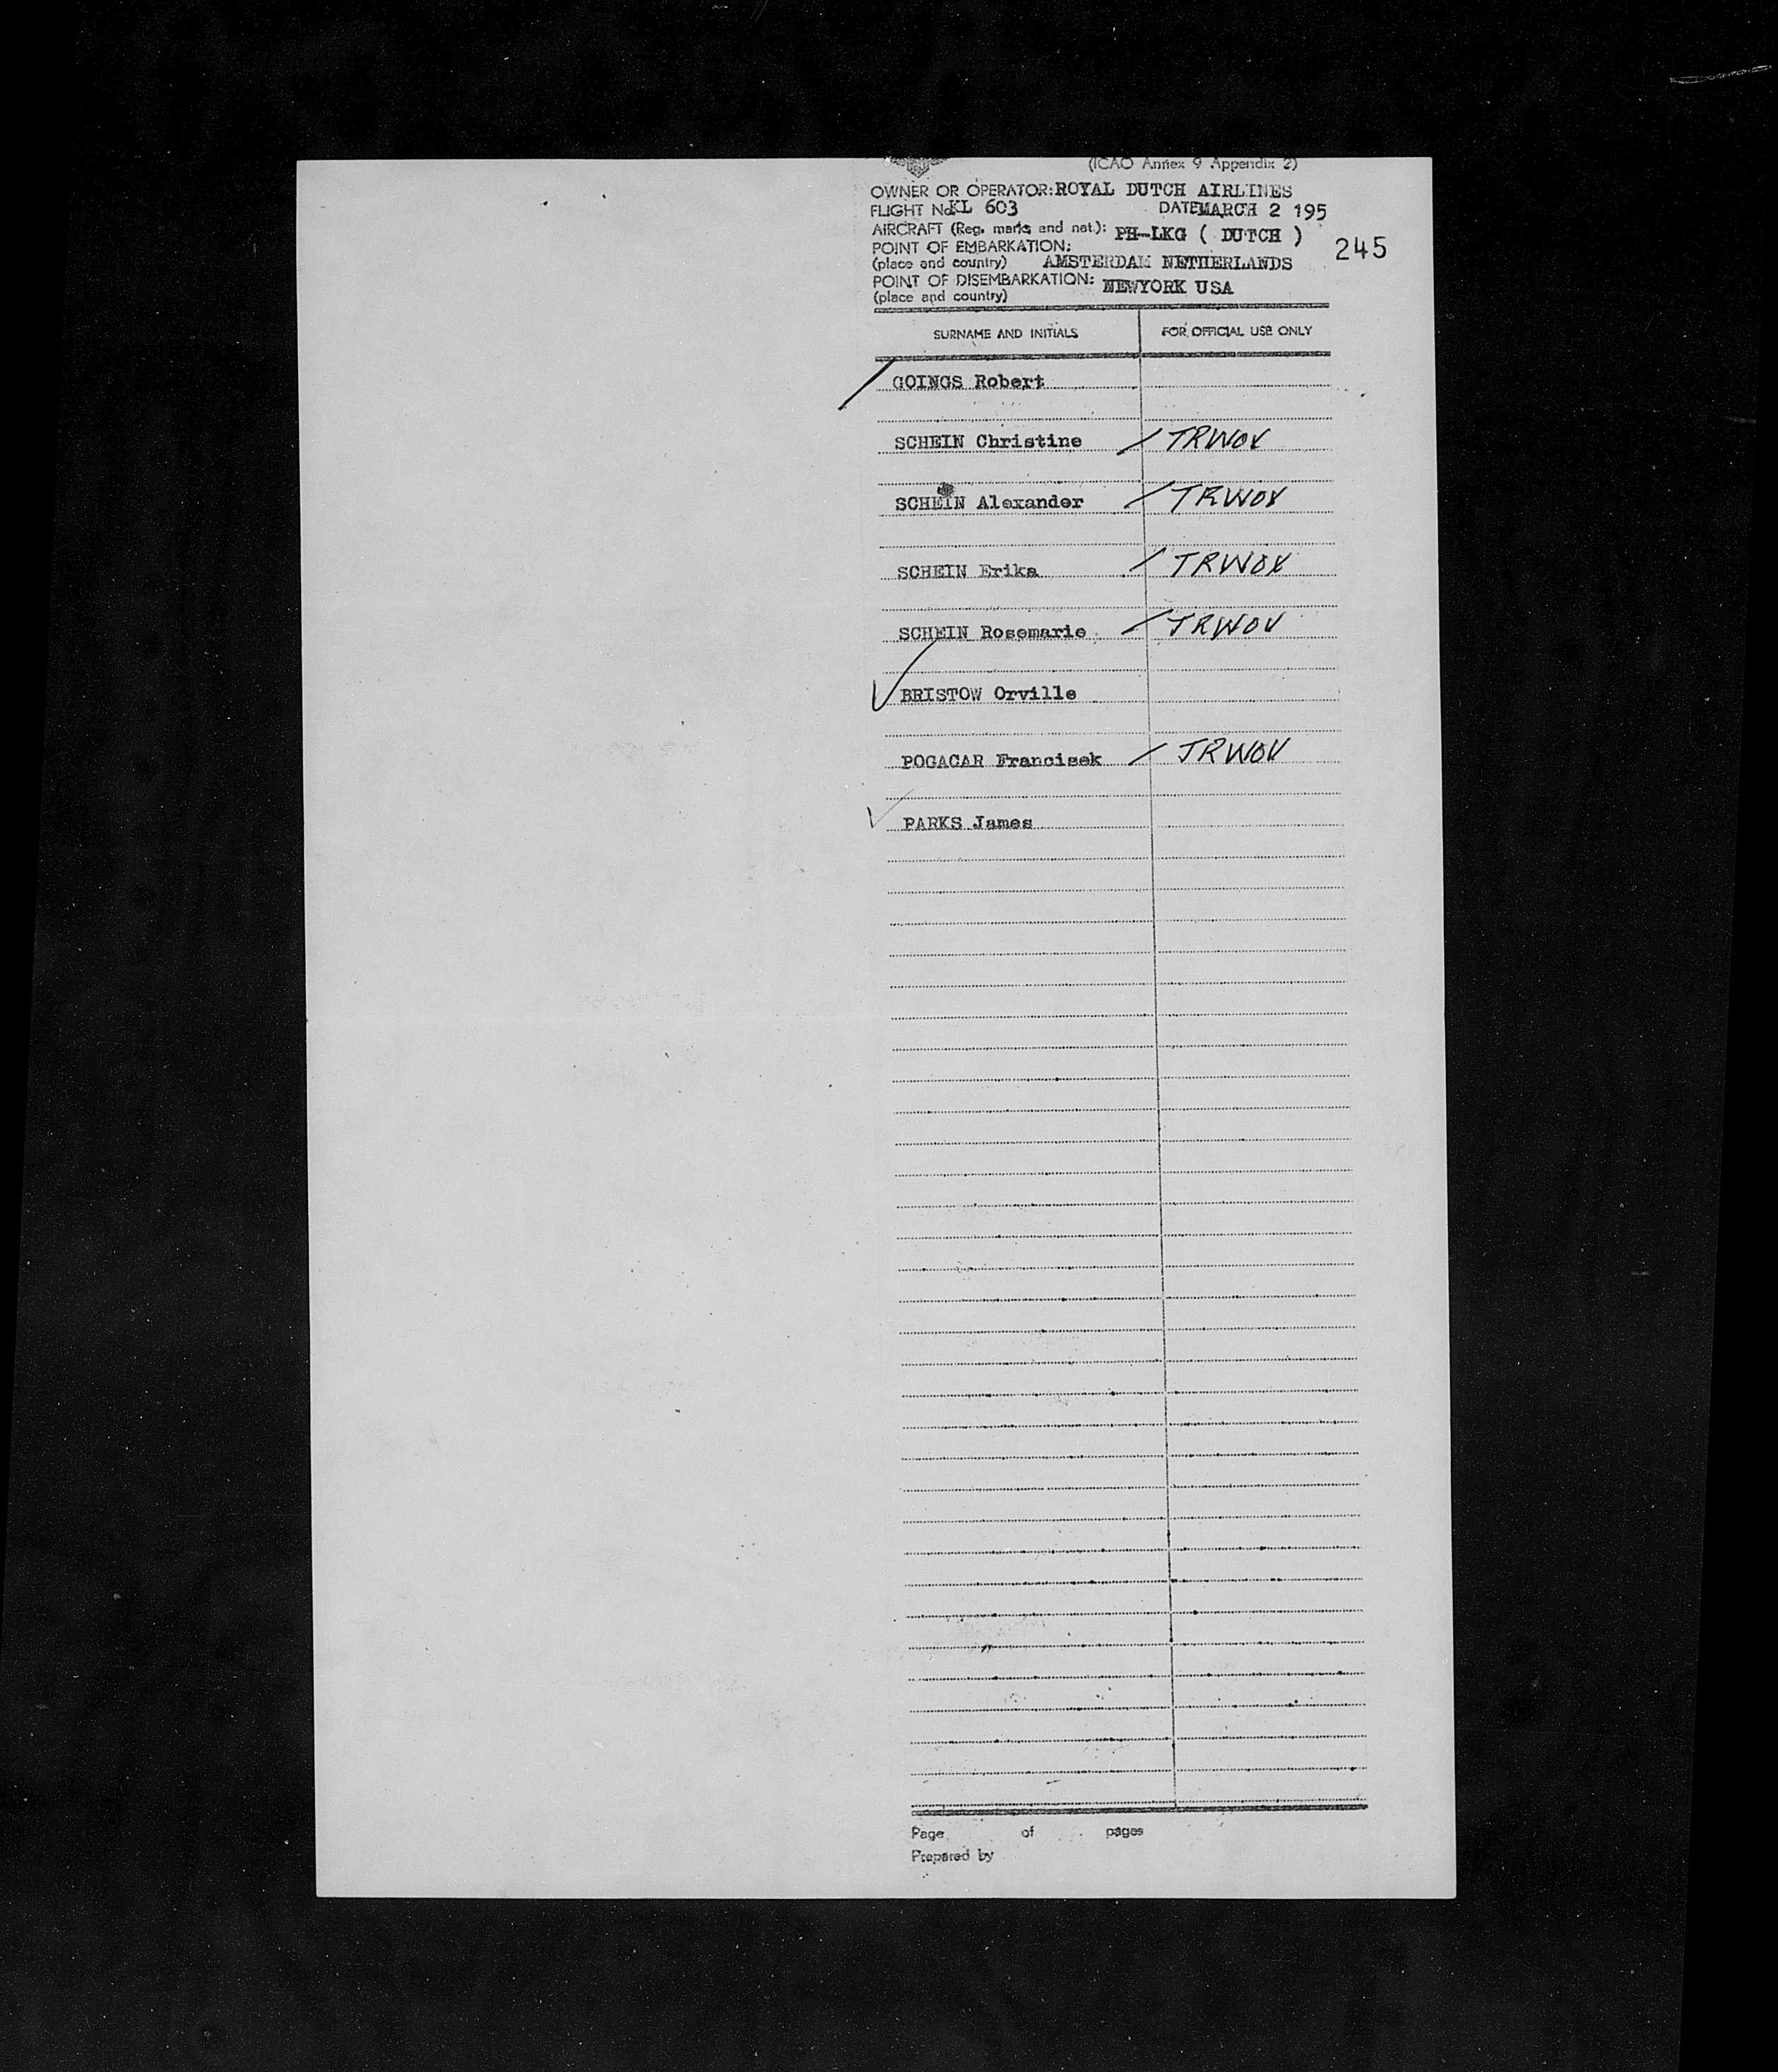 (ICAO Annex 9 Appendix 2)
OWNER OR OPERATOR: ROYAL DUTCH AIRLINES
FLIGHT No. KL 603 DATE MARCH 2 195
AIRCRAFT (Reg. marks and nat.): PH-LKG ( DUTCH )
245
POINT OF EMBARKATION:
(place and country) AMSTERDAM NETHERLANDS
POINT OF DISEMBARKATION: NEWYORK USA
(place and country)
SURNAME AND INITIALS FOR OFFICIAL USE ONLY
GOINGS Robert
SCHEIN Christine / TRWOV
SCHEIN Alexander / TRWOV
SCHEIN Erika / TRWOV
SCHEIN Rosemarie / TRWOV
BRISTOW Orville
POGACAR Francisek / TRWOV
PARKS James
Page of pages
Prepared by